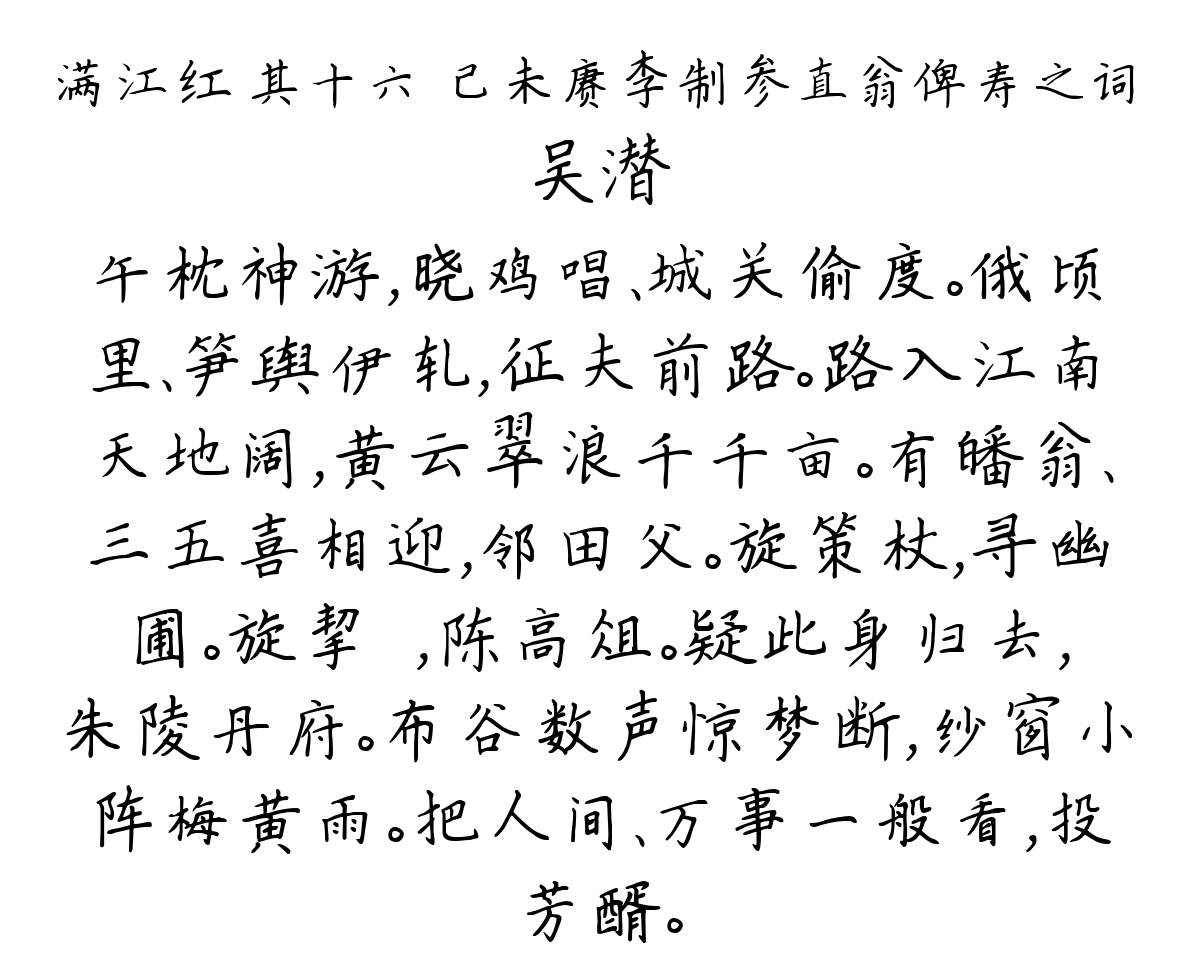 满江红 其十六 己未赓李制参直翁俾寿之词
吴潜
午枕神游,晓鸡唱、城关偷度。俄顷
里、笋舆伊轧,征夫前路。路入江南
天地阔,黄云翠浪千千亩。有皤翁、
三五喜相迎,邻田父。旋策杖,寻幽
圃。旋挈 ,陈高俎。疑此身归去,
朱陵丹府。布谷数声惊梦断,纱窗小
阵梅黄雨。把人间、万事一般看,投
芳醑。